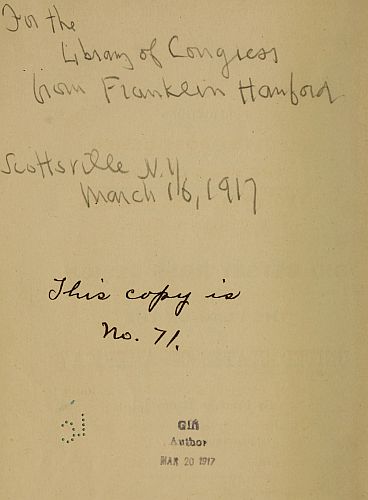 For the
Library of Congress
from Franklin Hanford
Scottsville N.Y.
March 16, 1917
This copy is
No. 71.
Gift
Author
MAR 20 1917